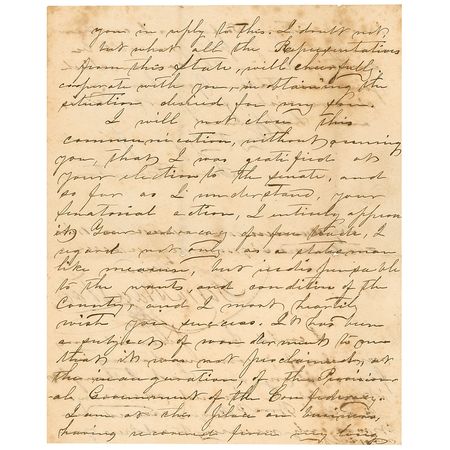 you in reply to this. I doubt not
but what all the Representatives
from this State, will cheerfully
cooperate with you, in obtaining the
situation desired for my Son.
I will not close this
communication, without assuring
you, that I was gratified at
your election to the Senate, and
so far as I understand, your
Senatorial action, I entirely approve
it, Your advocacy of free trade, I
regard not only, as a statesman
like measure, but indispensable
to the wants, and condition of the
Country, and I most heartily
wish you success. It has been
a subject of wonderment to me
that it was not proclaimed, at
the inauguration, of the Provision
al Government of the Confederacy.
I am at this place on business,
having removed from my